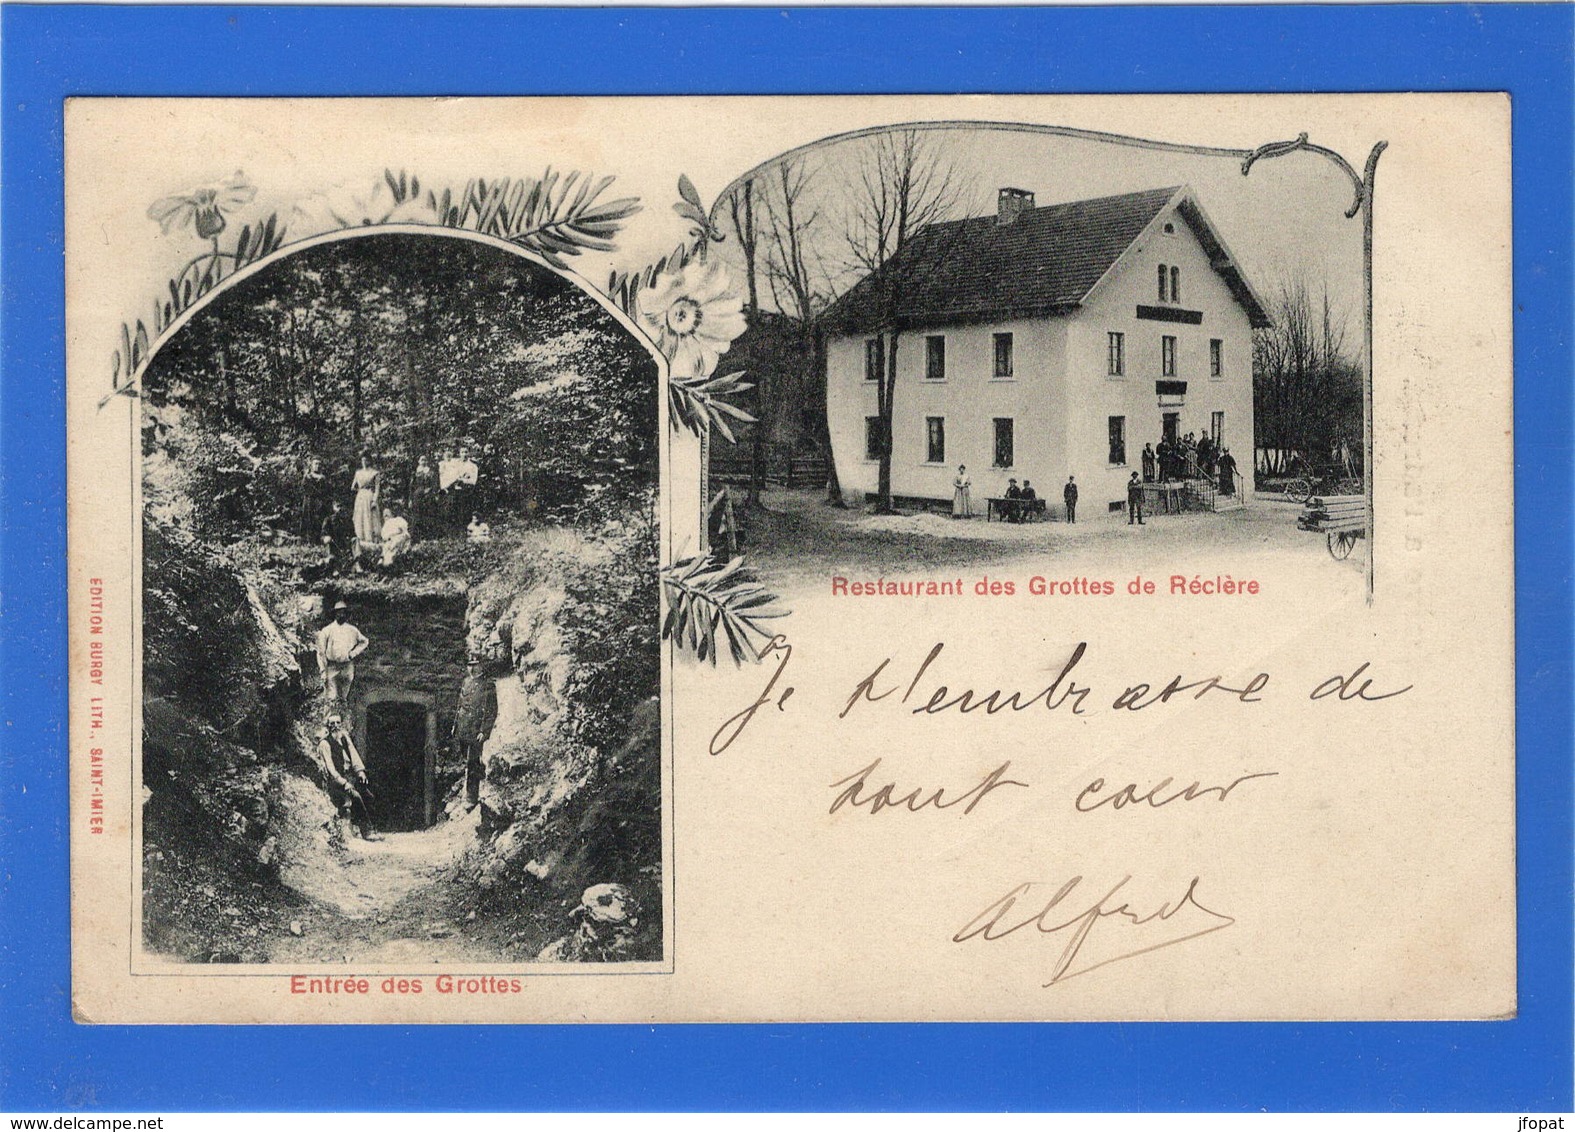 Restaurant des Grottes de Réclère
Je t'embrasse de
tout cœur
Alfred
Entrée des Grottes
EDITION BURGY LITH., SAINT-IMIER
www.delcampe.net
jfopat